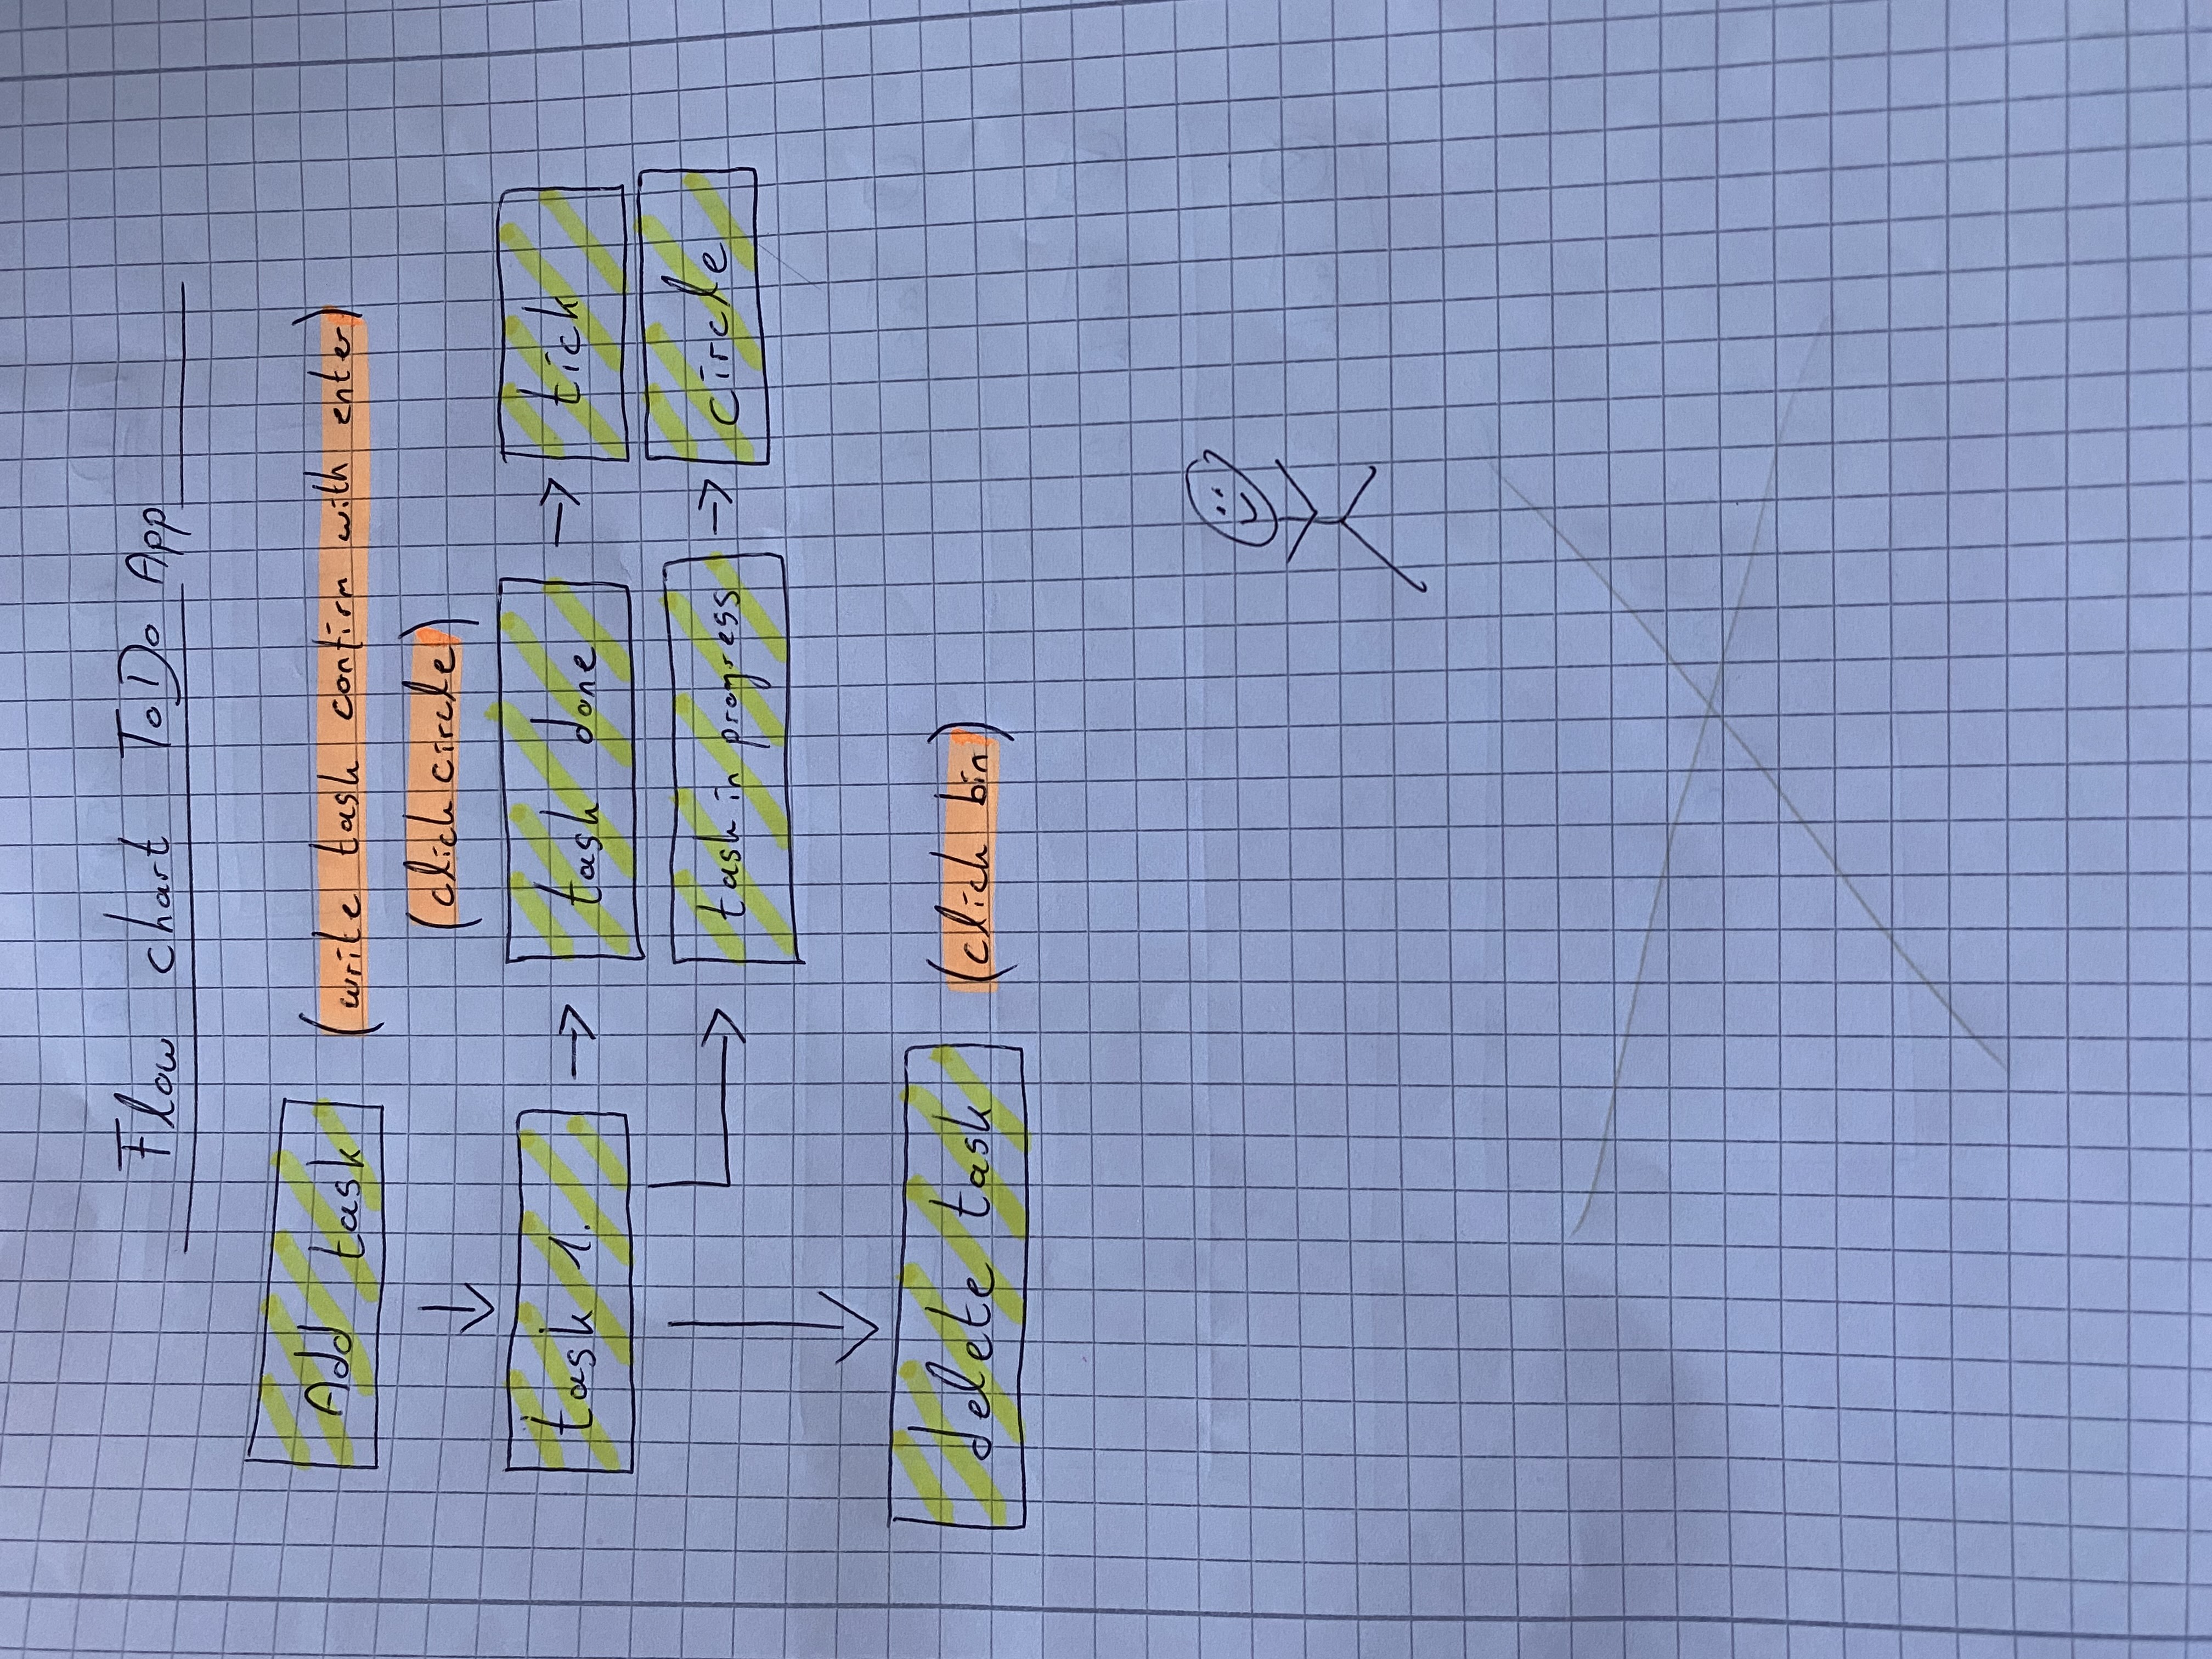 Flow chart ToDo App
Add task (write task confirm with enter)
(click circle)
task 1. task done tick
task in progress circle
delete task (click bin)